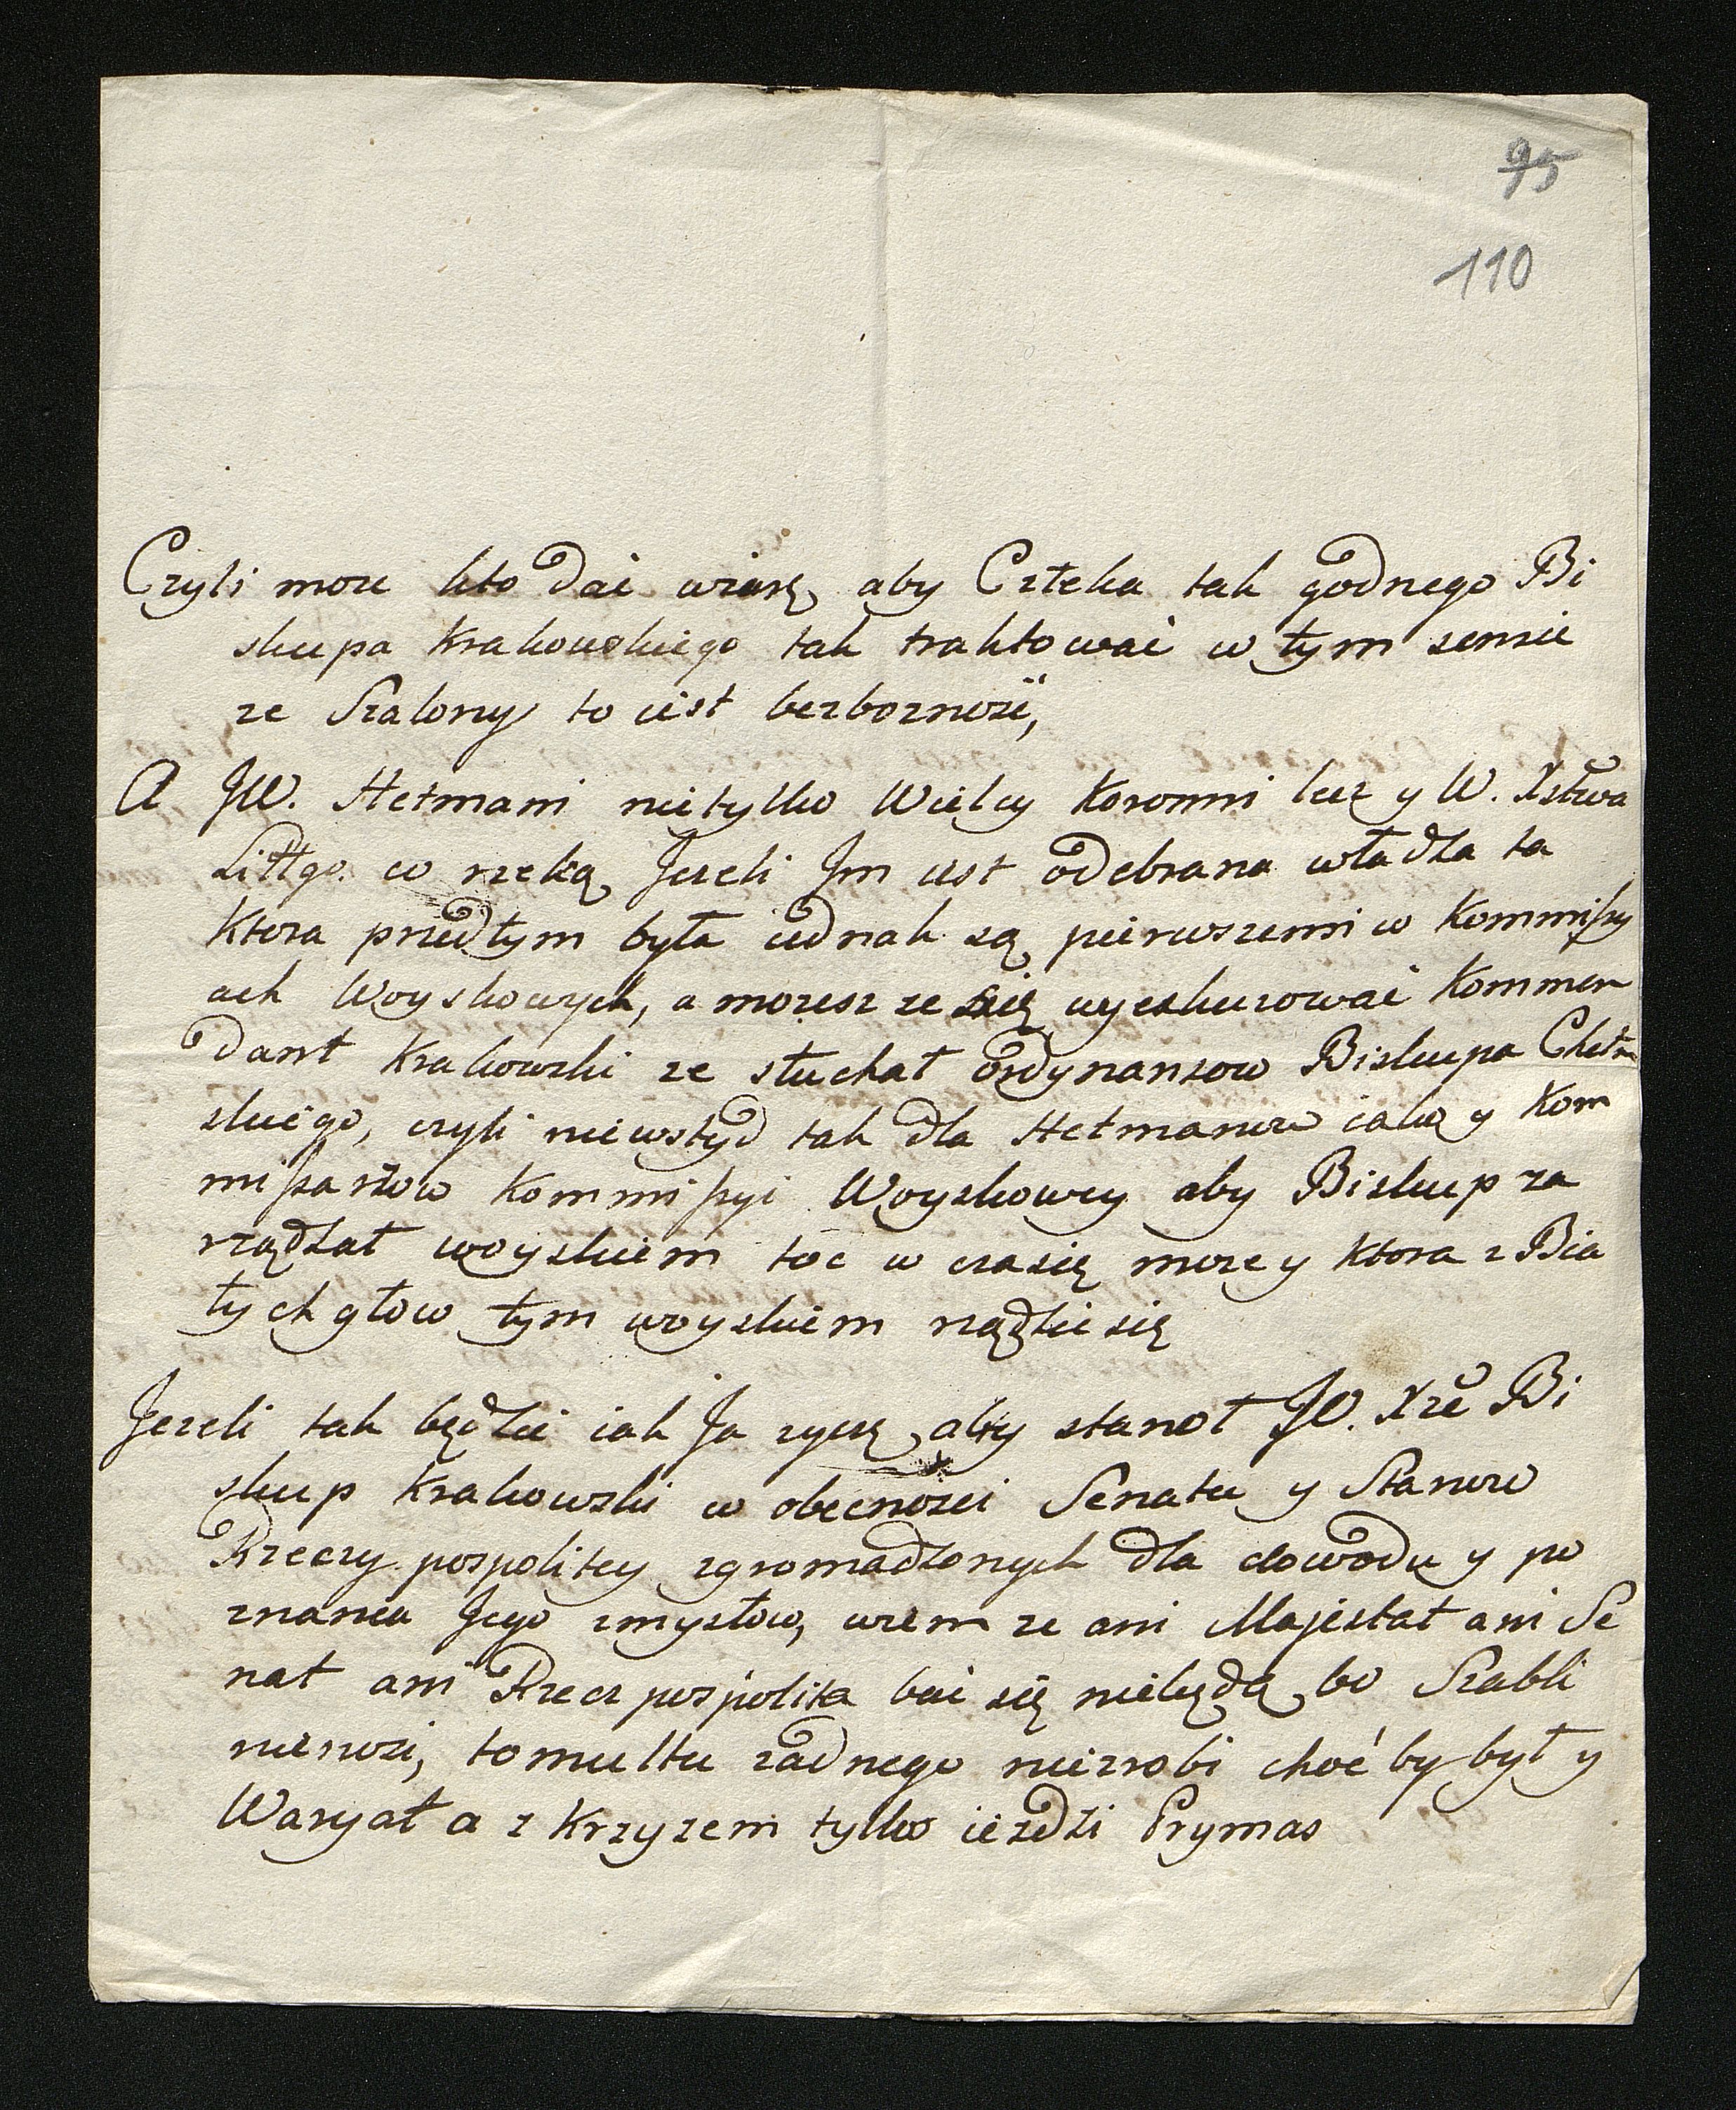 95
110
Czyli moze kto dać wiarę, aby Człeka tak godnego Bi
skupa Krakowskiego tak traktować w tym sensie
ze Szalony to iest bezbozność,
A JW. Hetmani nietylko Wielcy Koronni lecz y W. Xstwa
Littgo. co rzeką Jezeli Im iest odebrana władza ta
Ktora przedtym była iednak są pierwszemi w Kommissy
ach Woyskowych, a mozesz ze się wyexkuzować Kommen
dant Krakowski ze słuchał Ordynansow Biskupa Chełm
skiego, czyli niewstyd tak dla Hetmanow iako y Kom
missarzow Kommissyi Woyskowey aby Biskup za
rządzał woyskiem toć w czasię moze y ktora z Bia
łych głow tym woyskiem rządzić się
Jezeli tak będzie iak Ja zyczę, aby stanoł JO. Xże Bi
skup Krakowski w obecności Senatu y Stanow
Rzeczy pospolitey zgromadzonych dla dowodu y po
znania Jego zmysłow, wiem ze ani Majestat ani Se
nat ani Rzecz pospolita bać się niebędą, bo Szabli
nienosi, tomultu zadnego niezrobi choć by był y
Waryat a z Krzyzem tylko ieżdzi Prymas